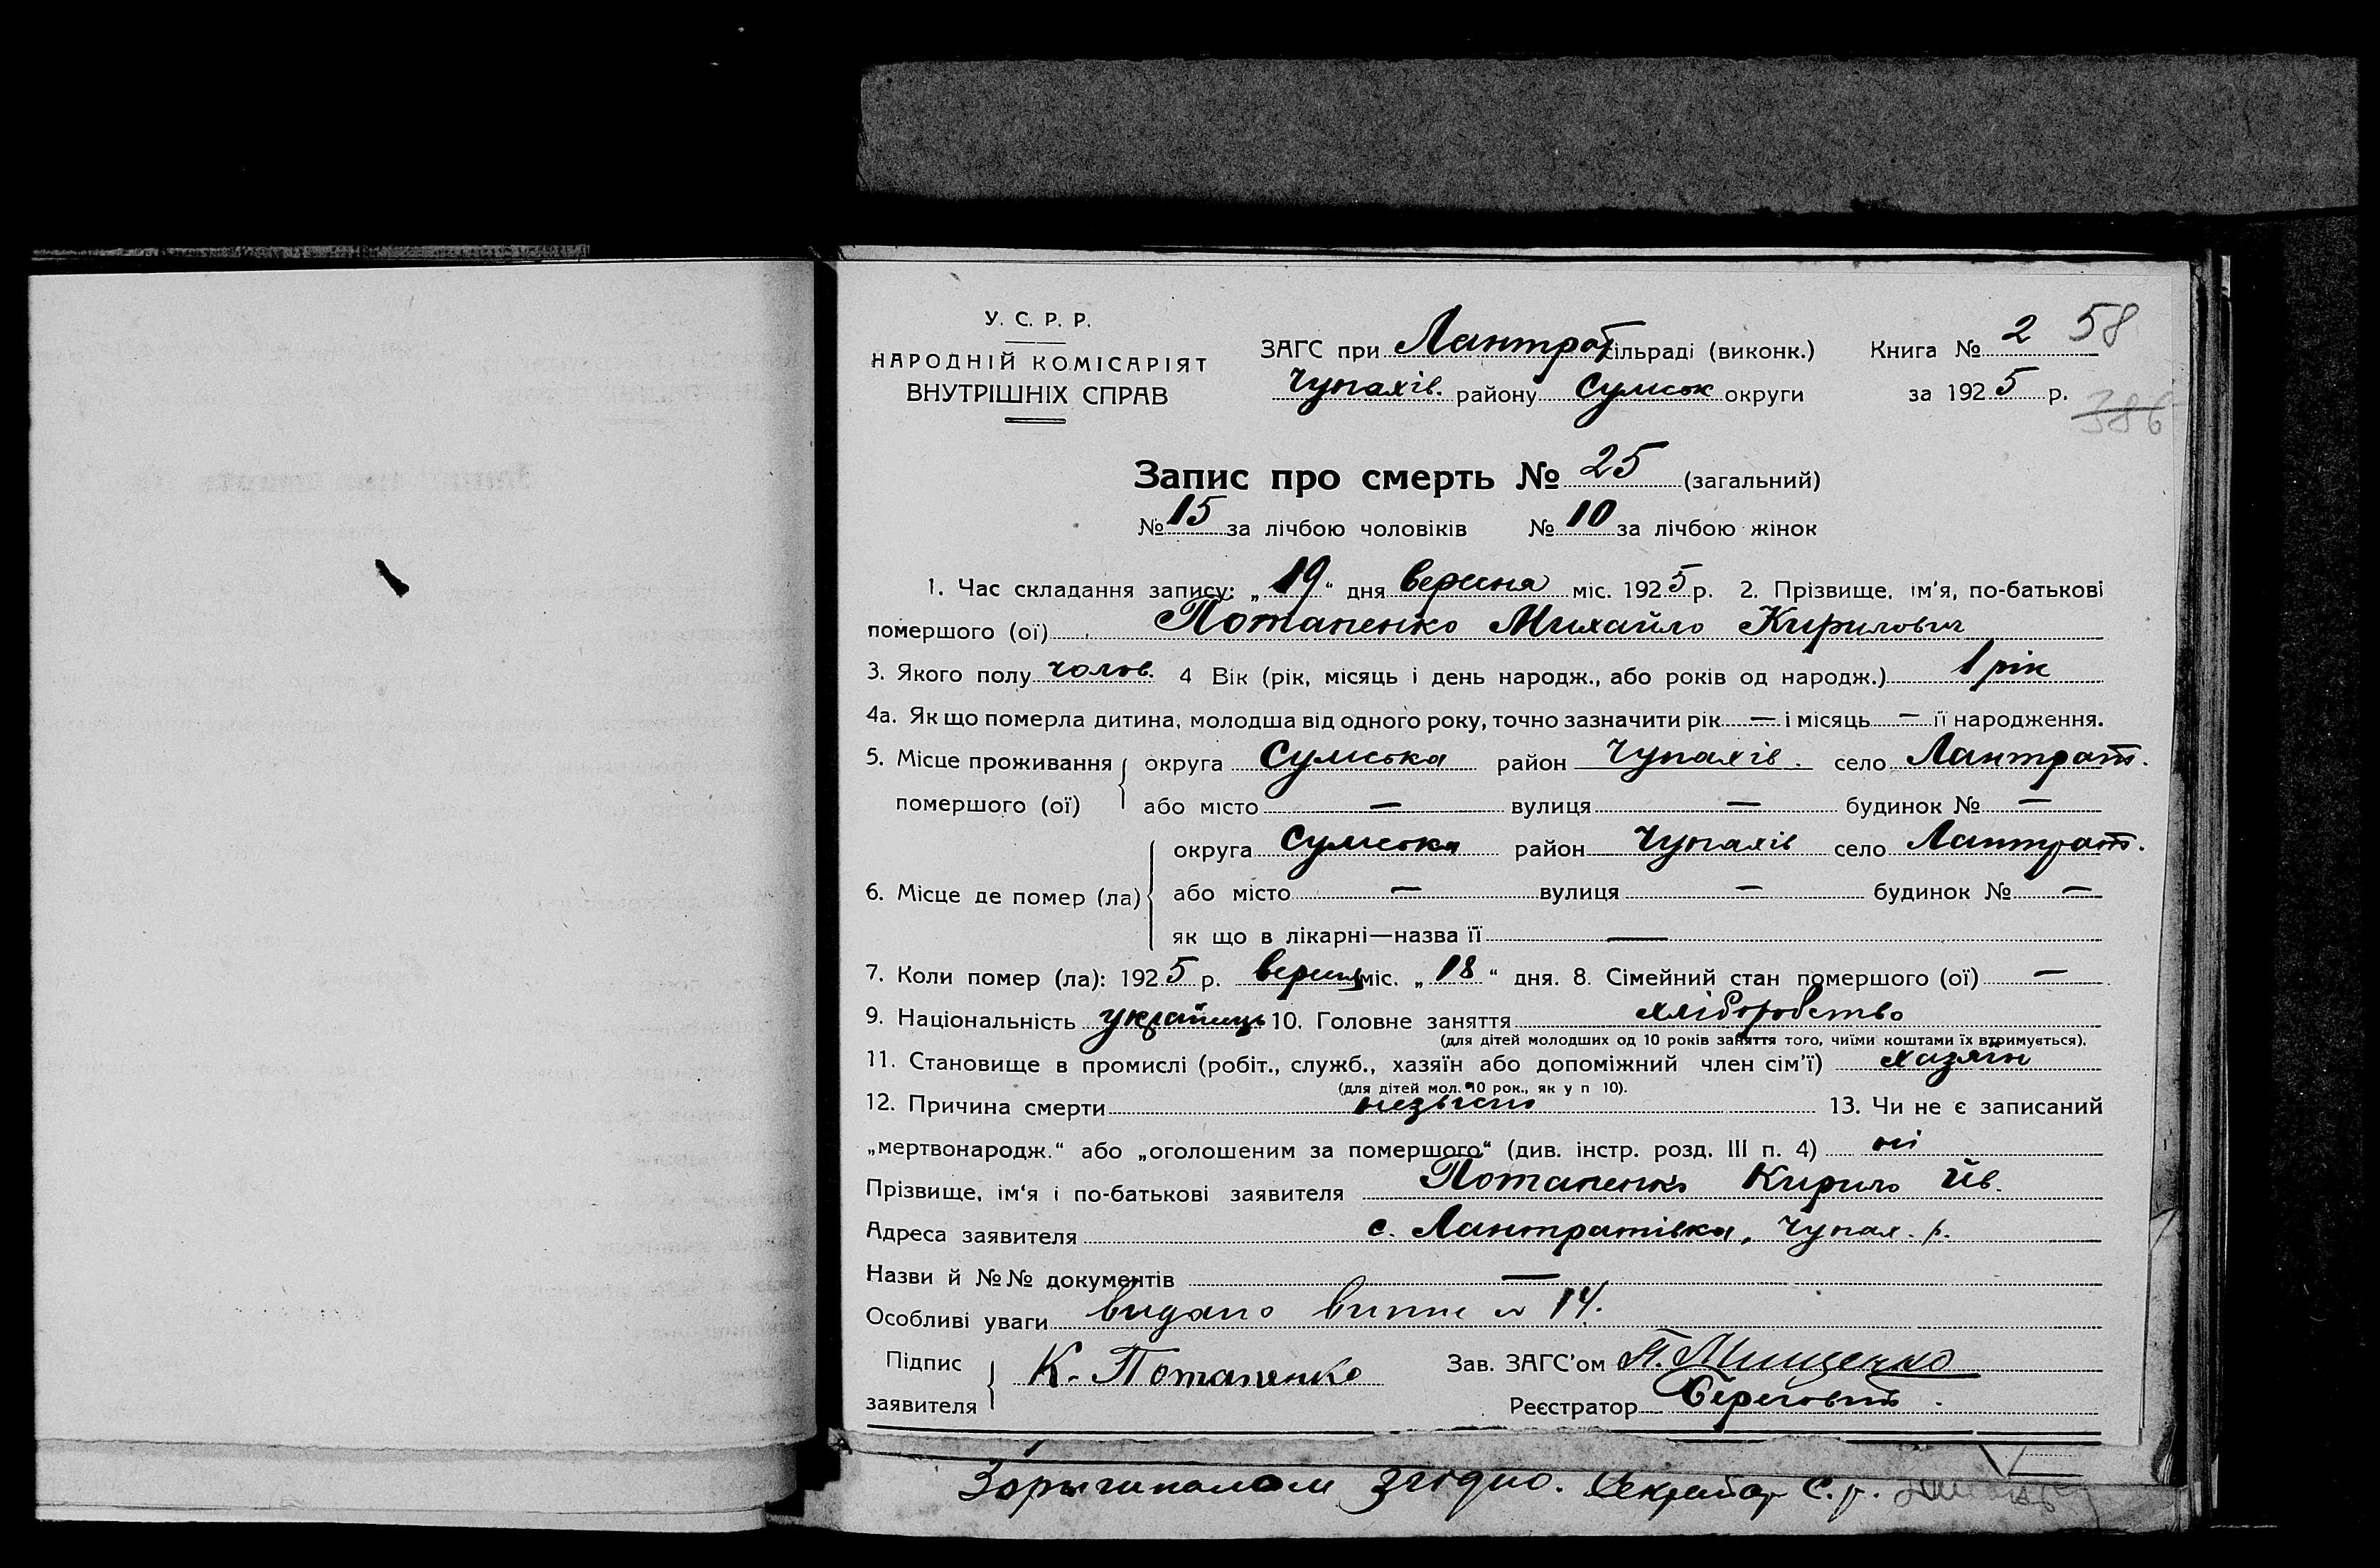 У. С. Р. Р.
НАРОДНІЙ КОМІСАРІЯТ
ВНУТРІШНІХ СПРАВ
ЗАГС при Лантрат сільраді (виконк.) Книга № 2 58
Чупахів. району Сумськ округи за 1925 р.
386
Запис про смерть № 25 (загальний)
№ 15 за лічбою чоловіків № 10 за лічбою жінок
1. Час складання запису: „19“ дня вересня міс. 1925 р. 2. Прізвище, ім'я, по-батькові
помершого (ої) Потапенко Михайло Кирилович
3. Якого полу чолов. 4 Вік (рік, місяць і день народж., або років од народж.) 1 рік
4а. Як що померла дитина, молодша від одного року, точно зазначити рік — і місяць — її народження.
5. Місце проживання округа Сумська район Чупахів. село Лантрат.
помершого (ої) або місто — вулиця — будинок № —
округа Сумська район Чупахів село Лантрат.
6. Місце де помер (ла) або місто — вулиця — будинок № —
як що в лікарні—назва її —
7. Коли помер (ла): 1925 р. вересня міс. „18“ дня. 8. Сімейний стан помершого (ої) —
9. Національність українець 10. Головне заняття хліборобство
(для дітей молодших од 10 років заняття того, чиїми коштами їх втримується).
11. Становище в промислі (робіт., служб., хазяїн або допоміжний член сім'ї) хазяїн
(для дітей мол. 10 рок., як у п 10).
12. Причина смерти 13. Чи не є записаний
„мертвонародж.“ або „оголошеним за помершого“ (див. інстр. розд. III п. 4) ні
Прізвище, ім'я і по-батькові заявителя Потапенко Кирило Ив.
Адреса заявителя с. Лантратівка, Чупах. р.
Назви й №№ документів —
Особливі уваги видано випис № 14.
Підпис К. Потапенко Зав. ЗАГС'ом П. Мищенко
заявителя Реєстратор
Зоригиналом згідно. Секретар С. р.